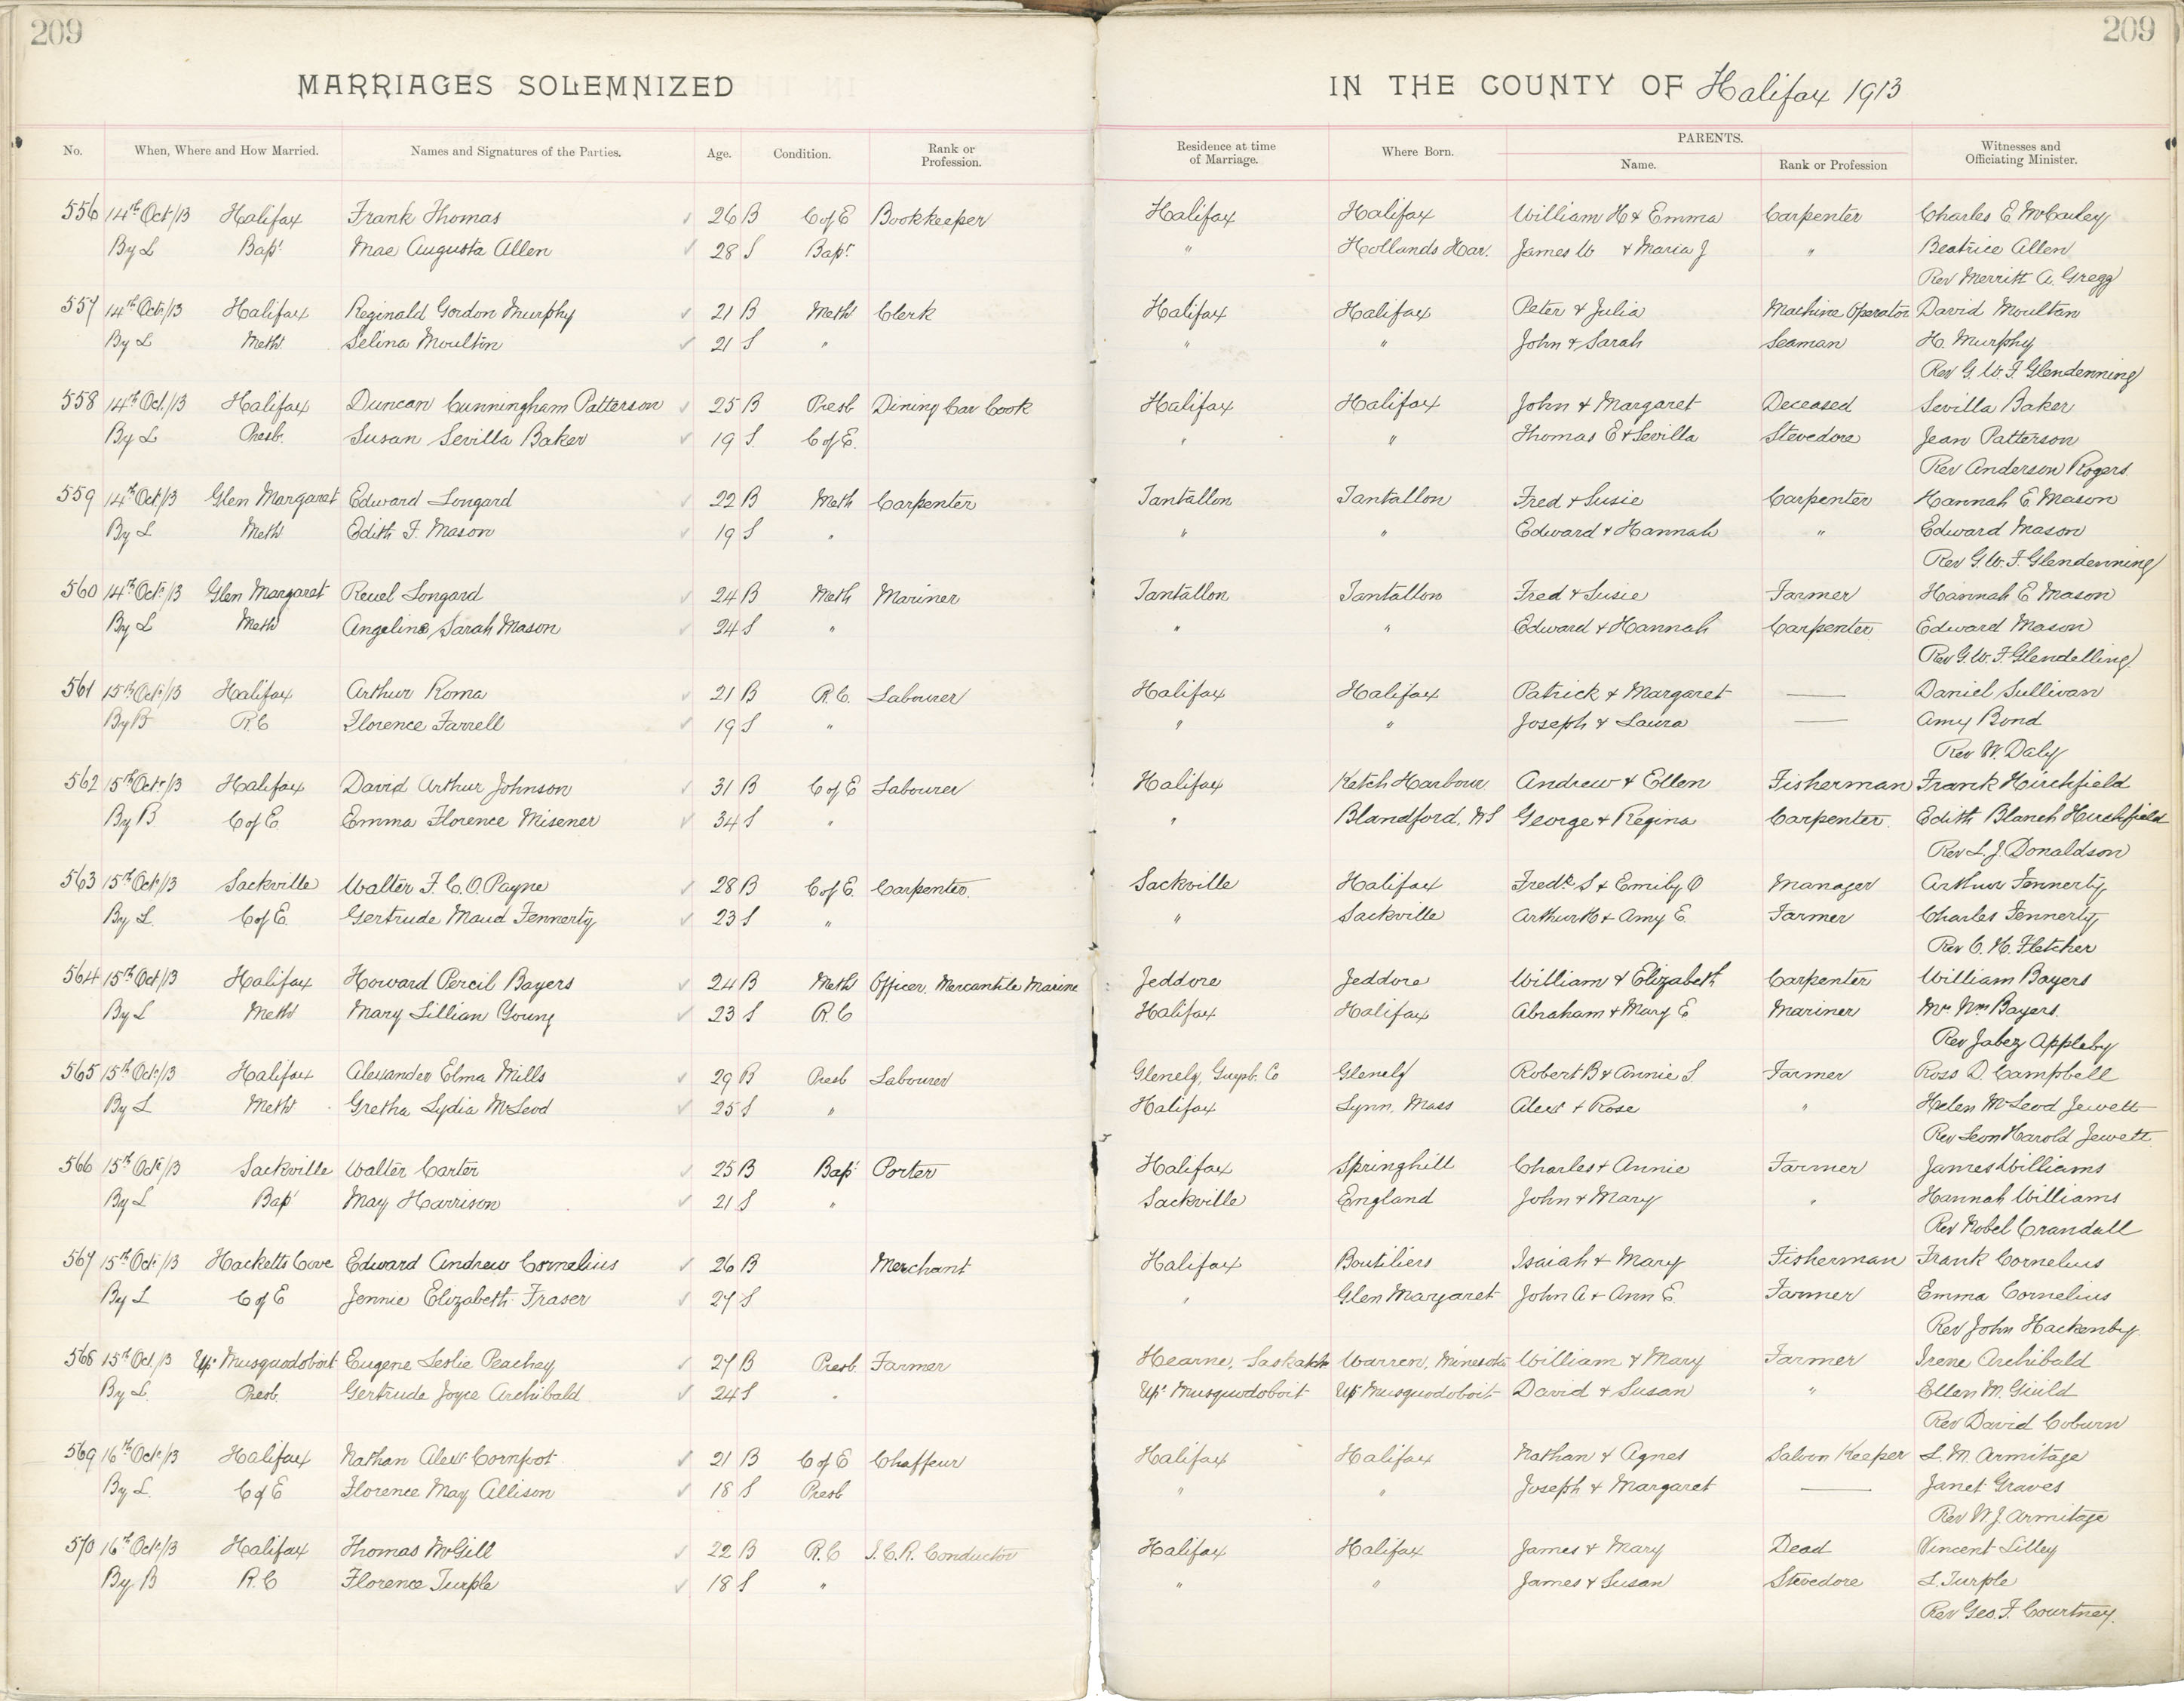 209 209
MARRIAGES SOLEMNIZED IN THE COUNTY OF Halifax 1913
No. When, Where and How Married. Names and Signatures of the Parties. Age. Condition. Rank or Profession. Residence at time of Marriage. Where Born. PARENTS. Name. Rank or Profession Witnesses and Officiating Minister.
556 14th Oct/13 Halifax Frank Thomas 26 B C of E Bookkeeper Halifax Halifax William H & Emma Carpenter Charles E McCarley
By L Bapt Mae Augusta Allen 28 S Bapt " Hollands Har. James W & Maria J " Beatrice Allen
Rev Merritt A. Gregg
557 14th Oct/13 Halifax Reginald Gordon Murphy 21 B Meth Clerk Halifax Halifax Peter & Julia Machine Operator David Moulton
By L Meth Selina Moulton 21 S " " " John & Sarah Seaman H. Murphy
Rev G. W. F. Glendenning
558 14th Oct/13 Halifax Duncan Cunningham Patterson 25 B Presb Dining Car Cook Halifax Halifax John & Margaret Deceased Sevilla Baker
By L Presb. Susan Sevilla Baker 19 S. C of E. " " Thomas E & Sevilla Stevedore Jean Patterson
Rev Anderson Rogers
559 14th Oct/13 Glen Margaret Edward Longard 22 B Meth Carpenter Tantallon Tantallon Fred & Susie Carpenter Hannah E Mason
By L Meth Edith F. Mason 19 S " " " Edward & Hannah " Edward Mason
Rev G. W. F. Glendenning
560 14th Oct/13 Glen Margaret Reuel Longard 24 B Meth Mariner Tantallon Tantallon Fred & Susie Farmer Hannah E Mason
By L Meth Angeline Sarah Mason 24 S " " " Edward & Hannah Carpenter Edward Mason
Rev G. W. F Glendelling
561 15th Oct/13 Halifax Arthur Roma 21 B R.C. Labourer Halifax Halifax Patrick & Margaret — Daniel Sullivan
By B R.C Florence Farrell 19 S " " " Joseph & Laura — Amy Bond
Rev W. Daly
562 15th Oct/13 Halifax David Arthur Johnson 31 B C of E Labourer Halifax Ketch Harbour Andrew & Ellen Fisherman Frank Hirchfield
By B C of E Emma Florence Misener 34 S " " Blandford, NS George & Regina Carpenter Edith Blanch Hirchfield
Rev L. J. Donaldson
563 15th Oct/13 Sackville Walter F. C. O. Payne 28 B C of E Carpenter. Sackville Halifax Fredk S & Emily O Manager Arthur Fennerty
By L. C of E. Gertrude Maud Fennerty 23 S " " Sackville Arthur H & Amy E. Farmer Charles Fennerty
Rev C. H. Fletcher
564 15th Oct/13 Halifax Howard Percil Bayers 24 B Meth Officer, Mercantile Marine Jeddore Jeddore William & Elizabeth Carpenter William Bayers
By L Meth Mary Lillian Young 23 S R.C Halifax Halifax Abraham & Mary E Mariner Mrs Wm Bayers.
Rev Jabez Appleby
565 15th Oct/13 Halifax Alexander Elma Mills 29 B Presb Labourer Glenelg, Guysb. Co Glenelg Robert B & Annie S. Farmer Ross D. Campbell
By L Meth Gretha Lydia McLeod 25 S " Halifax Lynn, Mass Alexr & Rose " Helen McLeod Jewett
Rev Leon Harold Jewett
566 15th Oct/13 Sackville Walter Carter 25 B Bapt Porter Halifax Springhill Charles & Annie Farmer James Williams
By L Bapt May Harrison 21 S " Sackville England John & Mary " Hannah Williams
Rev Nobel Crandall
567 15th Oct/13 Hacketts Cove Edward Andrew Cornelius 26 B Merchant Halifax Boutiliers Isaiah & Mary Fisherman Frank Cornelius
By L C of E Jennie Elizabeth Fraser 27 S " Glen Margaret John A & Ann E. Farmer Emma Cornelius
Rev John Hackenby
568 15th Oct/13 Upr Musquodoboit Eugene Leslie Peachey 27 B Presb Farmer Hearne, Saskatch Warren, Minesota William & Mary Farmer Irene Archibald
By L. Presb. Gertrude Joyce Archibald 24 S " Upr Musquodoboit Upr Musquodoboit David & Susan " Ellen M. Guild
Rev David Coburn
569 16th Oct/13 Halifax Nathan Alexr Cornfoot 21 B C of E Chaffeur Halifax Halifax Nathan & Agnes Saloon Keeper L. M. Armitage
By L. C of E Florence May Allison 18 S Presb " " Joseph & Margaret — Janet Graves
Rev W. J. Armitage
570 16th Oct/13 Halifax Thomas McGill 22 B R.C I.C.R. Conductor Halifax Halifax James & Mary Dead Vincent Lilley
By B R.C Florence Turple 18 S " " " James & Susan Stevedore L. Turple
Rev Geo. F. Courtney.